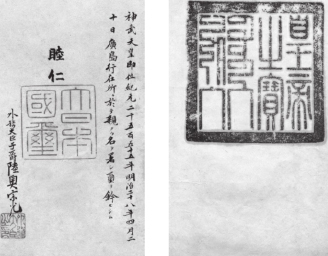 神武天皇即位紀元二千五百五十五年明治二十八年四月二
十日廣島行在所ニ於テ親ラ名ヲ署シ璽ヲ鈐セシム
睦仁
大日本
國璽
外務大臣子爵陸奧宗光
皇帝
之寶